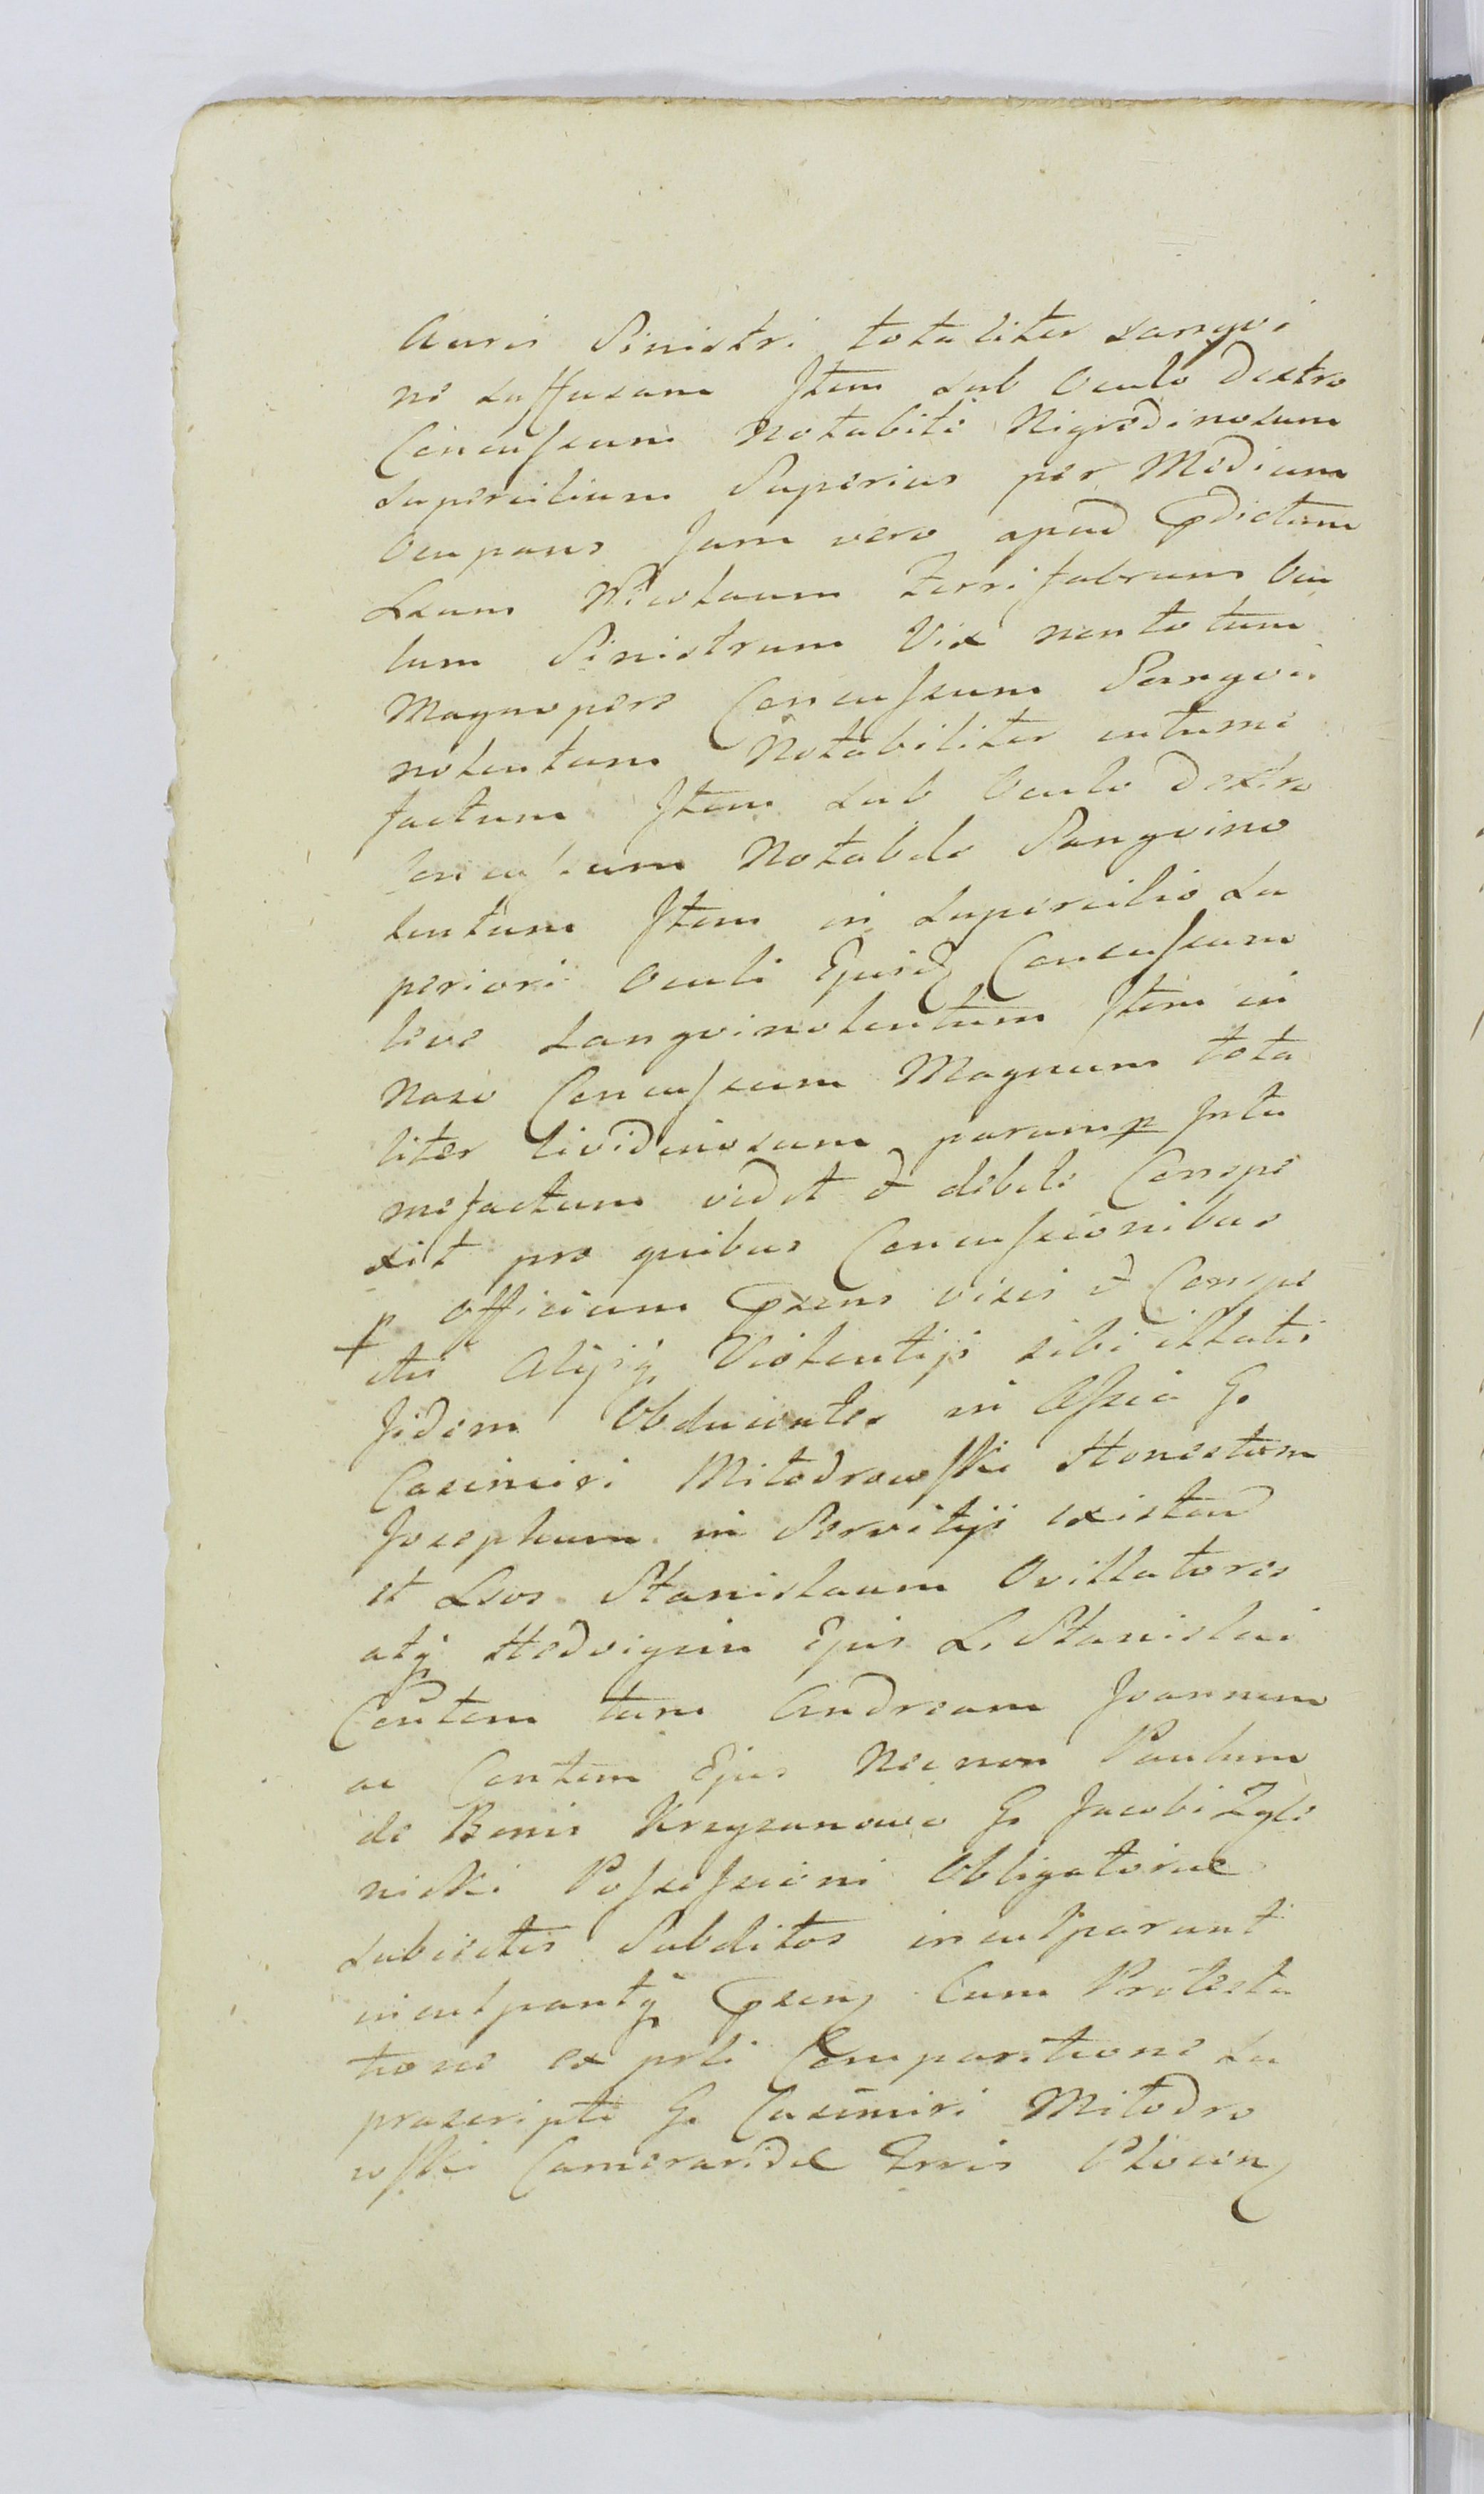 Auris Sinistri totaliter sangvi
ne suffusam Item sub Oculo dextro
Concussum Notabile Nigredinosum
supercilium Superius per Medium
Occupans Jam vero apud Pdictum
Lsum Nicolaum ferrifabrum Ocu
lum Sinistrum Vix non totum
Magnopere Concussum Sangvi
nolentum Notabiliter intume
factum Item sub Oculo dextro
Concussum Notabile Sangvino
lentum Item in supercilio su
periori Oculi Ejusd Concussum
leve sangvinolentum Item in
Naso Concussum Magnum tota
liter lividinosum parump Intu
mefactum vidit et debite Conspe
xit pro quibus Concussionibus
p officium Psens visis et Conspe
ctis Alijsq Violentijs sibi illatis
Fidem Obducentes in Assia G
Casimiri Mitodrowski Honestum
Josephum in Servitijs existen
et Lsos Stanislaum Ovillatores
atq Hedvigim Ejus L Stanislai
Contem tum Andream Joannem
ac Contem Ejus Necnon Paulum
de Bonis Krzyzanowo G Jacobi Zgle
nicki Possessioni Obligatoriae
subiectis Subditos inculparunt
inculpantq Psen Cum Protesta
tione ex psti Comparitione su
prascripti G Casimiri Mitodro
wski Camerarida Trris Plocen